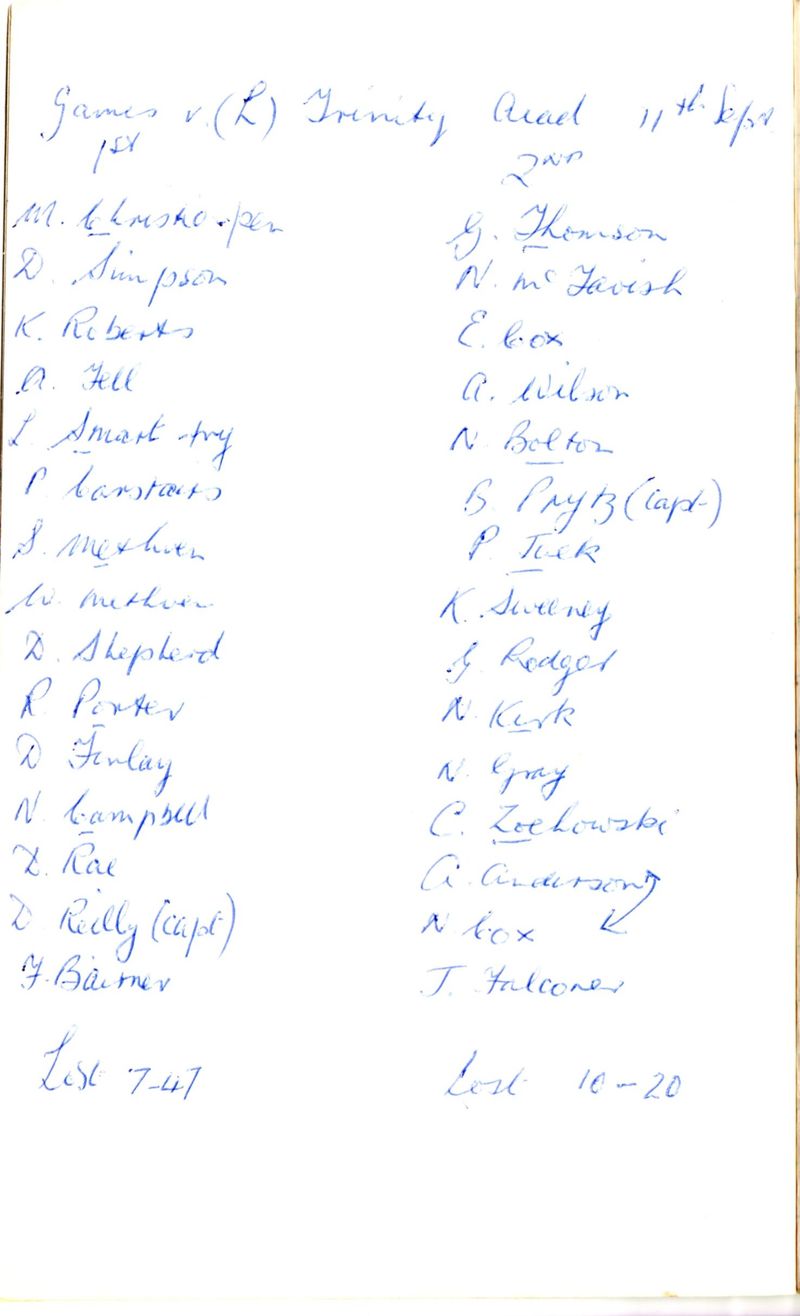 Games v. (L) Trinity Acad 11th Sept
1st
2nd
M. Christie - pen
D. Simpson
K. Roberts
A. Fell
L. Smart - try
P. Carstairs
S. Methven
W. Methven
D. Shepherd
R. Porter
D Finlay
N. Campbell
D. Rae
D Reilly (capt)
F. 
G. Thomson
N. McTavish
E. Cox
A. Wilson
N Bolton
B. Prytz (capt)
P. Tuck
K. Sweeney
G Rodger
N. Kirk
N. Gray
C. Zochowski
A. Anderson
N Cox
J. Falconer
Lost 7-47
Lost 10-20